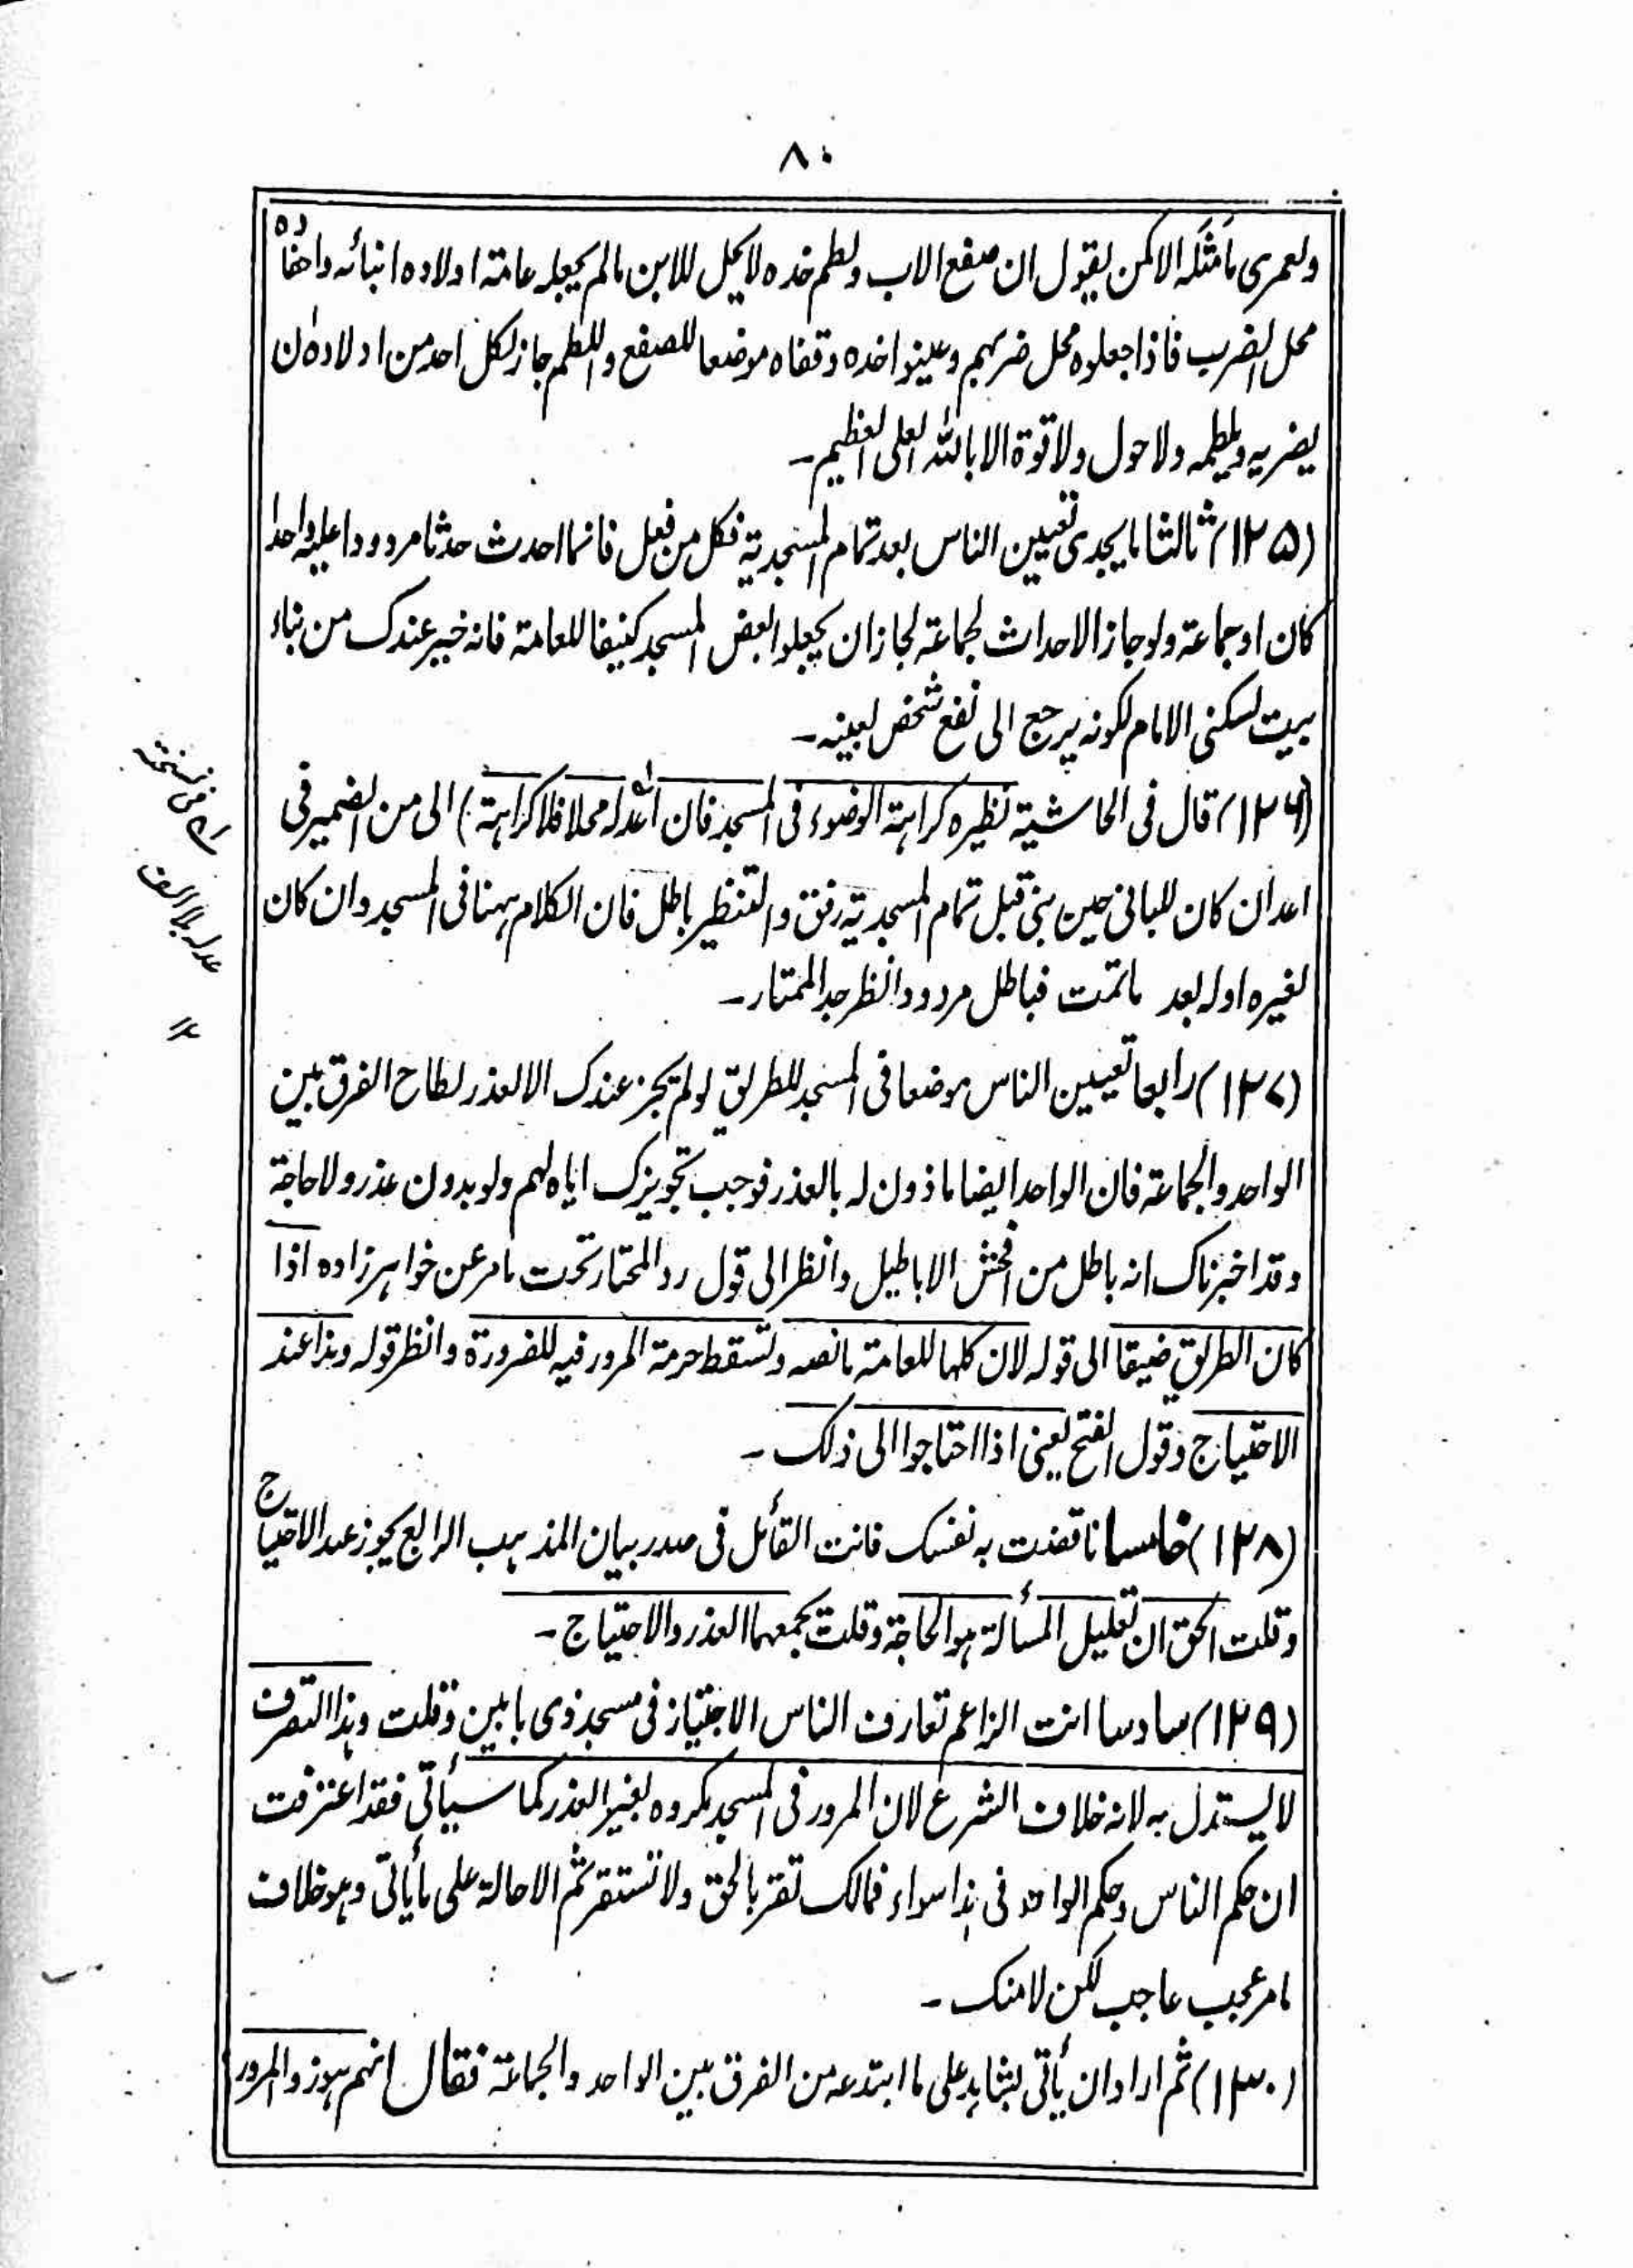 ٨٠
ولعمرى ما مَثَلُه الا كمن يقول ان صفع الاب ولطم خده لا يحل للابن ما لم يجعله عامة اولاده ابنائه واحفاده
محل الضرب فاذا جعلوه محل ضربهم وعينوا خده وقفاه موضعا للصفع واللطم جاز لكل احد من اولاده ان
يضربه ويلطمه ولاحول ولاقوة الا بالله العلى العظيم۔
(۱۲۵) ثالثا ما يجدى تعيين الناس بعد تمام المسجدية فكل من فعل فانما احدث حدثا مردودا عليه واحدا
كان او جماعة ولو جاز الاحداث لجماعة لجاز ان يجعلوا بعض المسجد كنيفا للعامة فانه خير عندك من بناء
بيت لسكنى الامام لكونه يرجع الى نفع شخص بعينه۔
(۱۲۶) قال فى الحاشية نظيره كراهة الوضوء فى المسجد فان اعد له محلا فلا كراهة) الى من الضمير فى
اعد ان كان للبانى حين بنى قبل تمام المسجدية رفق والتنظير باطل فان الكلام ههنا فى المسجد وان كان
لغيره اوله بعد ما تمت فباطل مردود وانظر جد الممتار۔
(۱۲۷) رابعا تعيين الناس موضعا فى المسجد للطريق لو لم يجز عندك الا لعذر لطاح الفرق بين
الواحد والجماعة فان الواحد ايضا ماذون له بالعذر فوجب تجويزك اياه لهم ولو بدون عذر ولا حاجة
وقد اخبرناك انه باطل من افحش الاباطيل وانظر الى قول رد المحتار تحت مامر عن خواهر زاده اذا
كان الطريق ضيقا الى قوله لان كلها للعامة مانصه وتسقط حرمة المرور فيه للضرورة وانظر قوله وهذا عند
الاحتياج وقول الفتح يعنى اذا احتاجوا الى ذلك۔
(۱۲۸) خامسا ناقضت به نفسك فانت القائل فى صدر بيان المذهب الرابع يجوز عند الاحتياج
وقلت الحق ان تعليل المسألة هو الحاجة وقلت يجمعهما العذر والاحتياج۔
(۱۲۹) سادسا انت الزاعم تعارف الناس الاجتياز فى مسجد ذى بابين وقلت وهذا التعرف
لا يستدل به لانه خلاف الشرع لان المرور فى المسجد مكروه لغير العذر كما سيأتى فقد اعترفت
ان حكم الناس وحكم الواحد فى هذا سواء فمالك تقر بالحق ولا تستقر ثم الاحالة على ما يأتى وهو خلاف
مامر عجب عاجب لكن لا منك۔
(۱۳۰) ثم اراد ان يأتى بشاهد على ما ابتدعه من الفرق بين الواحد والجماعة فقال انهم جوزوا المرور
من نسخة
عد له بلا الف
۱۲